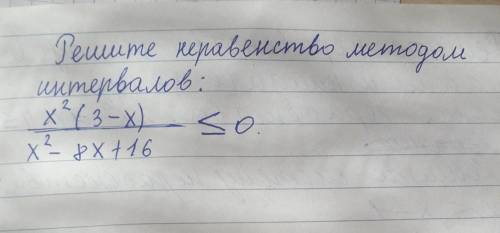 Решите неравенство методом
интервалов:
x²(3-x)
x²- 8x+16
≤0.